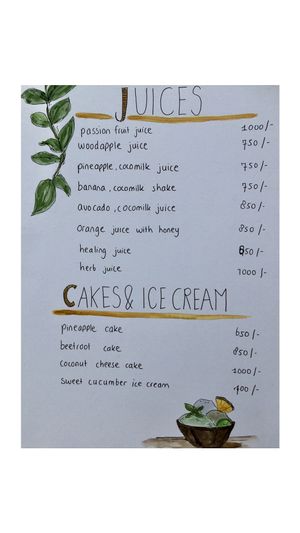 JUICES
passion fruit juice 1000/-
woodapple juice 750/-
pineapple, cocomilk juice 750/-
banana, cocomilk shake 750/-
avocado, cocomilk juice 850/-
orange juice with honey 850/-
healing juice 850/-
herb juice 1000/-
CAKES & ICE CREAM
pineapple cake 650/-
beetroot cake 850/-
coconut cheese cake 1000/-
sweet cucumber ice cream 400/-